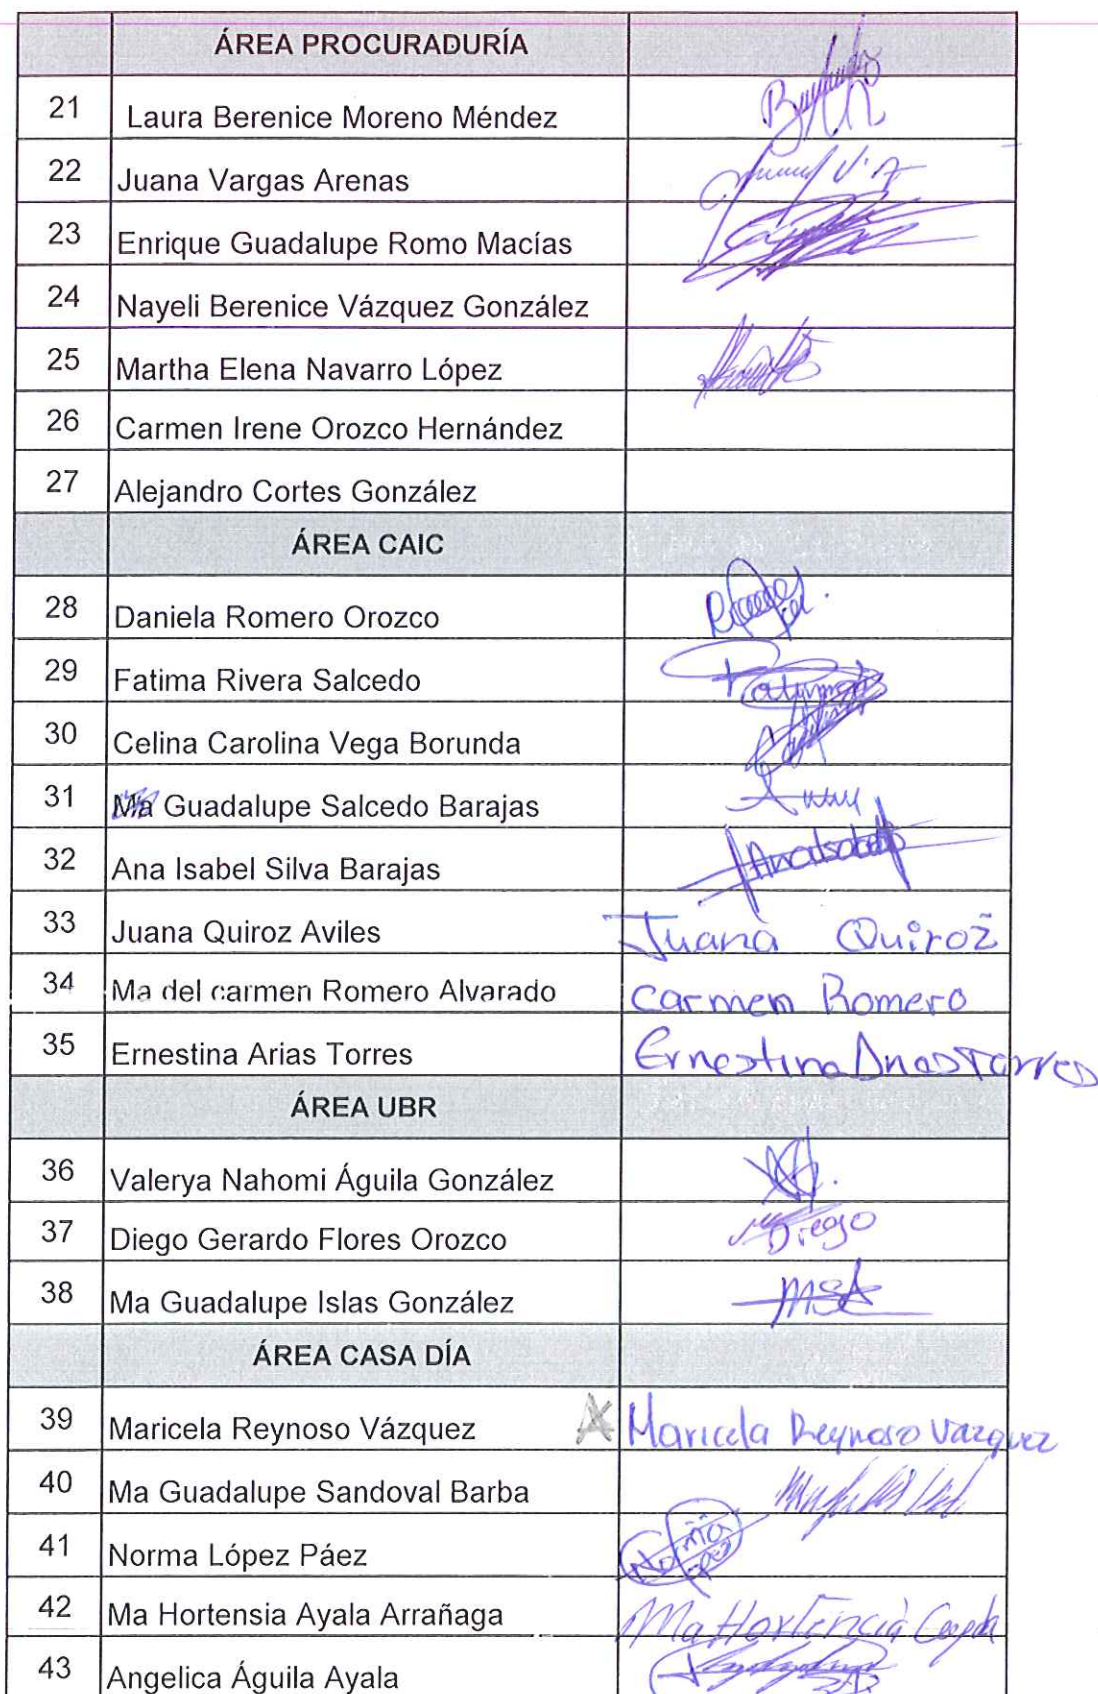 ÁREA PROCURADURÍA
21 Laura Berenice Moreno Méndez
22 Juana Vargas Arenas
23 Enrique Guadalupe Romo Macías
24 Nayeli Berenice Vázquez González
25 Martha Elena Navarro López
26 Carmen Irene Orozco Hernández
27 Alejandro Cortes González
ÁREA CAIC
28 Daniela Romero Orozco
29 Fatima Rivera Salcedo
30 Celina Carolina Vega Borunda
31 Ma Guadalupe Salcedo Barajas
32 Ana Isabel Silva Barajas
33 Juana Quiroz Aviles Juana Quiroz
34 Ma del carmen Romero Alvarado Carmen Romero
35 Ernestina Arias Torres Ernestina Arias Torres
ÁREA UBR
36 Valerya Nahomi Águila González
37 Diego Gerardo Flores Orozco Diego
38 Ma Guadalupe Islas González
ÁREA CASA DÍA
39 Maricela Reynoso Vázquez Maricela Reynoso Vazquez
40 Ma Guadalupe Sandoval Barba
41 Norma López Páez
42 Ma Hortensia Ayala Arrañaga Ma Hortencia
43 Angelica Águila Ayala